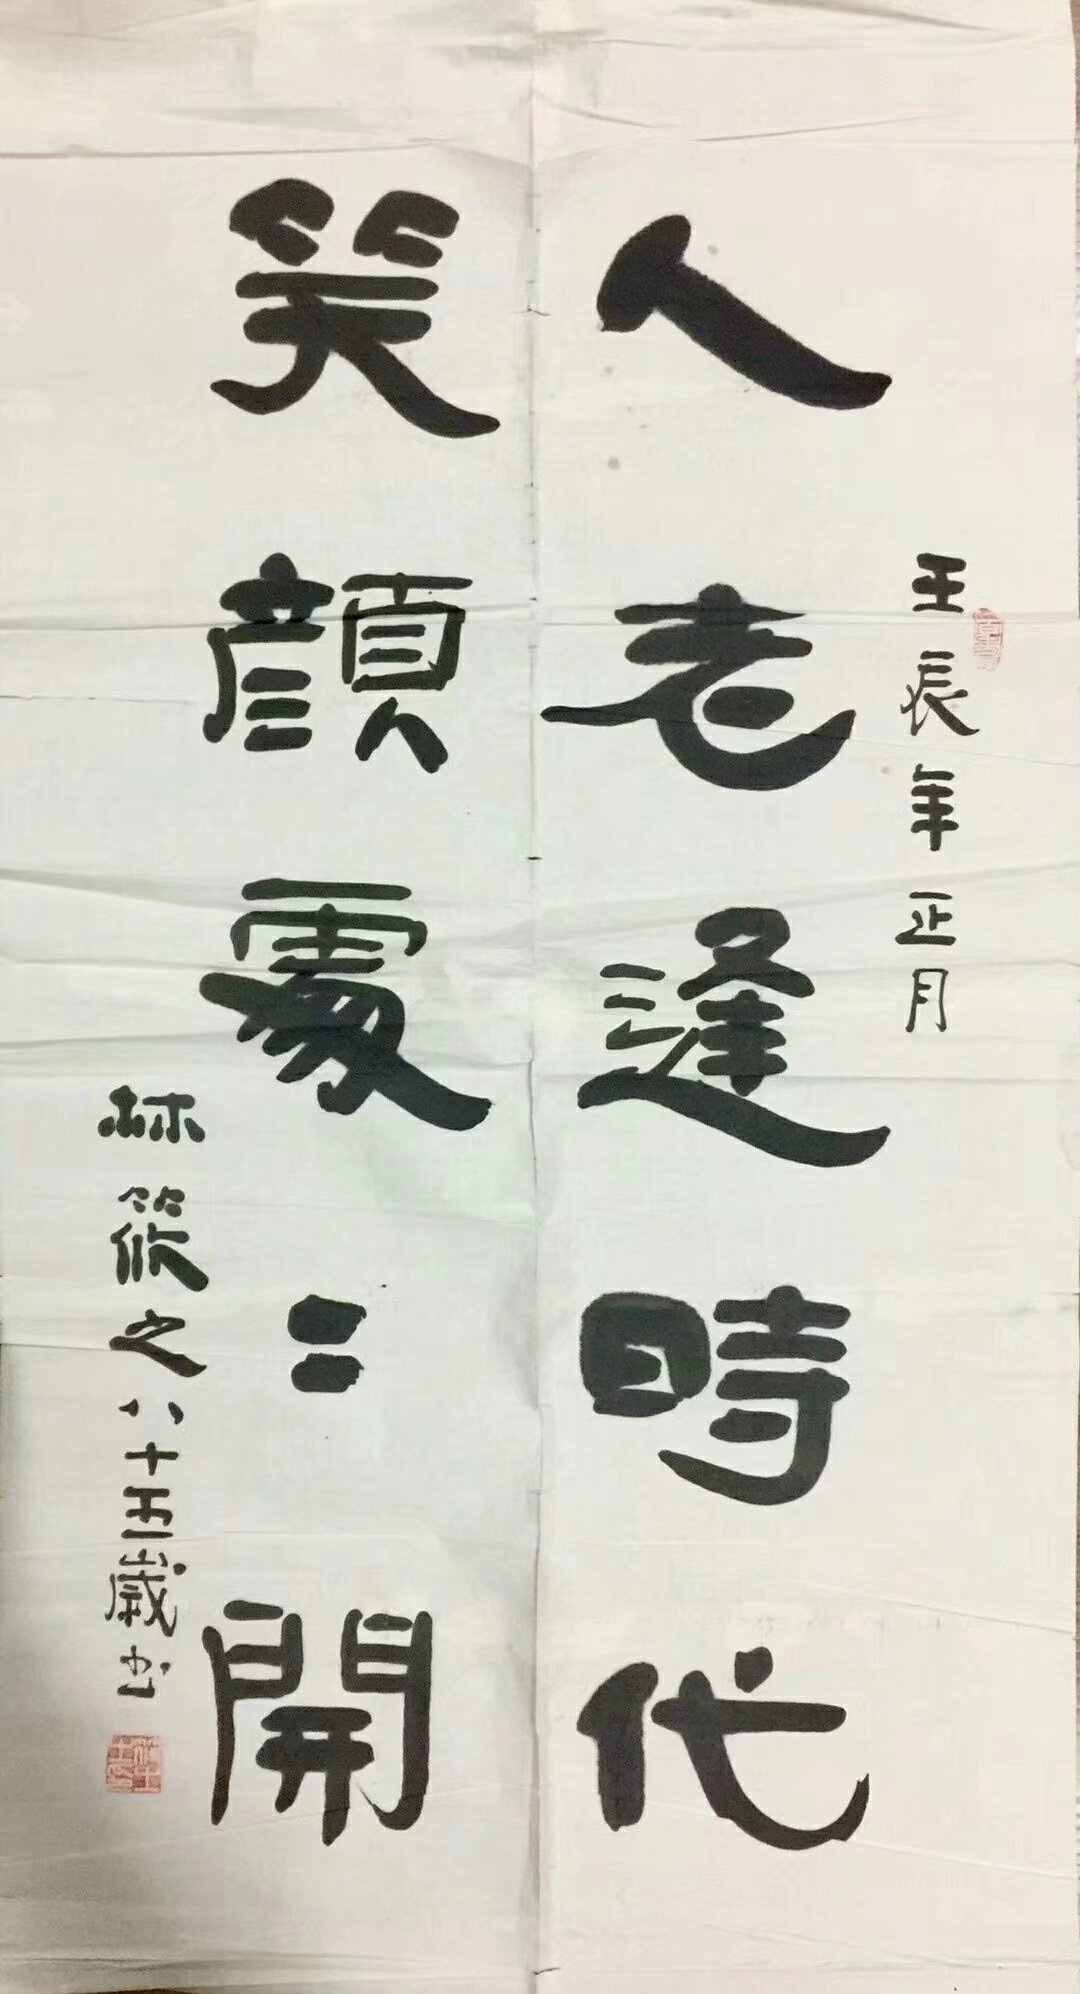 壬辰年正月
人老逢時代
笑顏處〻開
林筱之八十五歲書